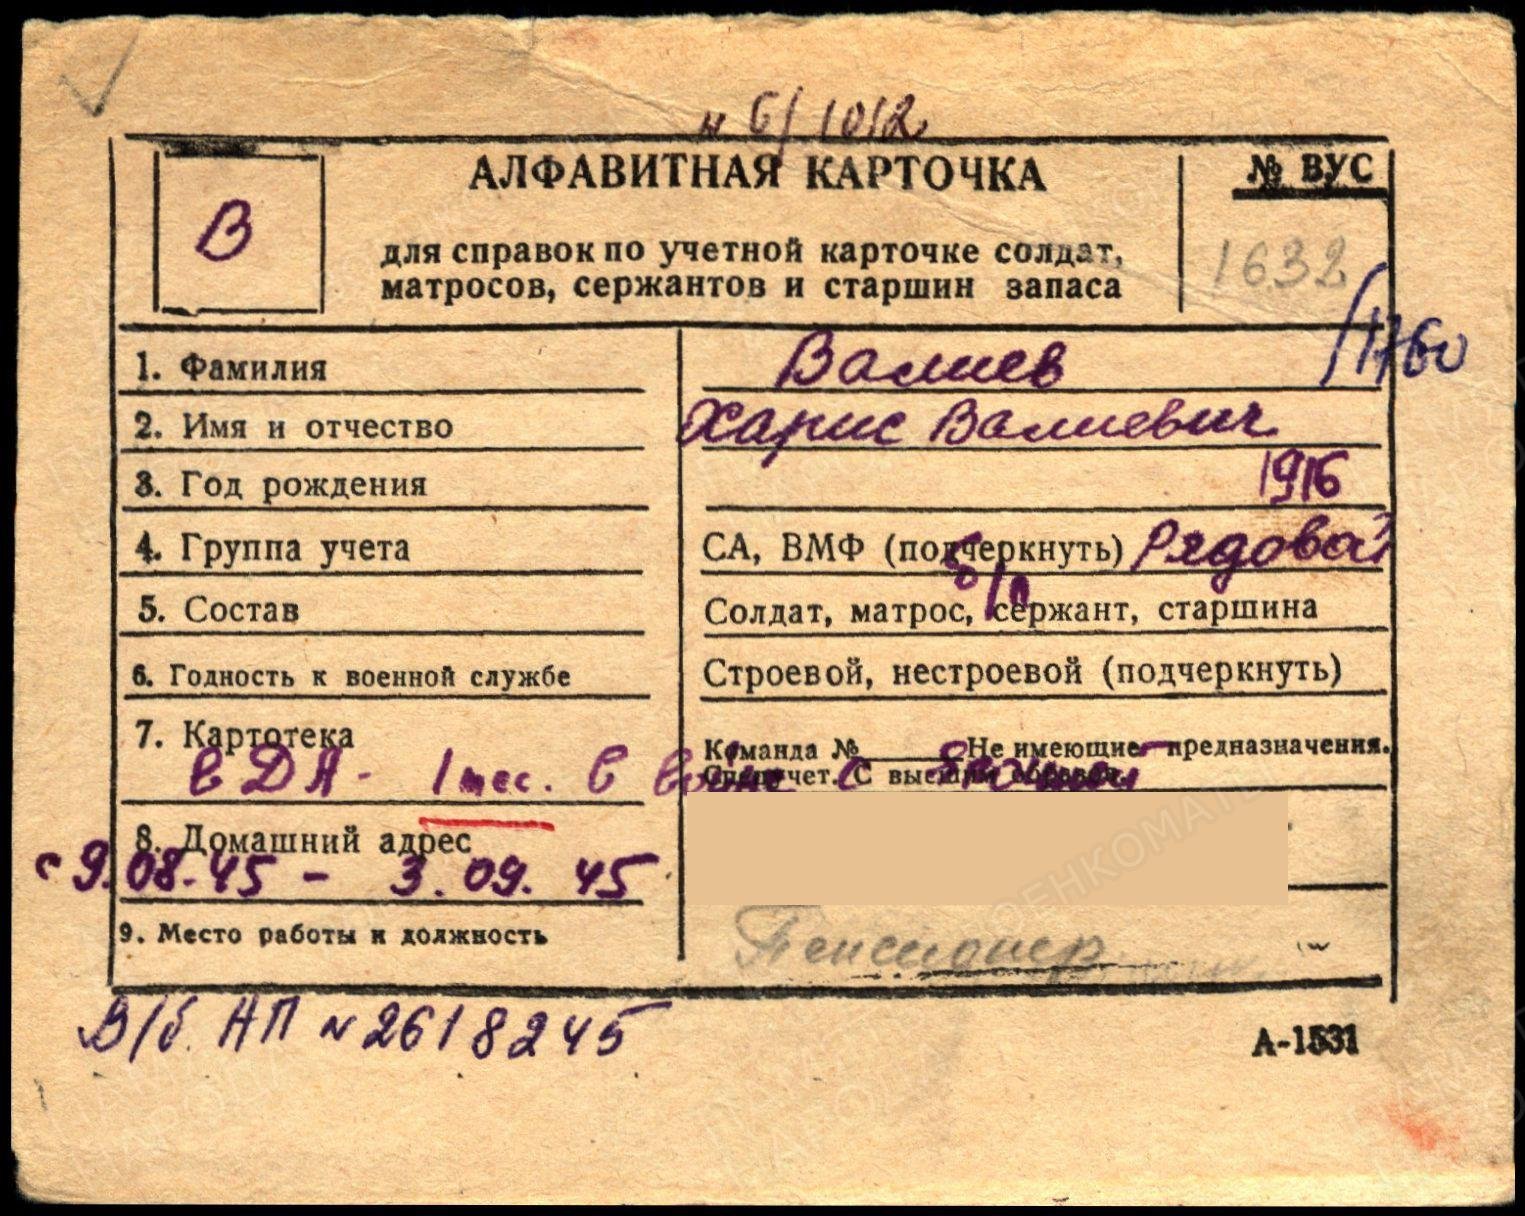 № 6/1012
АЛФАВИТНАЯ КАРТОЧКА
№ ВУС
В
для справок по учетной карточке солдат,
матросов, сержантов и старшин запаса
1632
/1760
1. Фамилия Валиев
2. Имя и отчество Харис Валиевич
3. Год рождения 1916
4. Группа учета СА, ВМФ (подчеркнуть) Рядовой
б/п
5. Состав Солдат, матрос, сержант, старшина
6. Годность к военной службе Строевой, нестроевой (подчеркнуть)
7. Картотека Команда № Не имеющие предназначения.
Спецучет. С высшим образов.
в ДА - 1 мес. в войне с Японией
8. Домашний адрес
с 9.08.45 - 3.09.45
9. Место работы и должность Пенсионер
В/б. НП № 2618245
А-1531